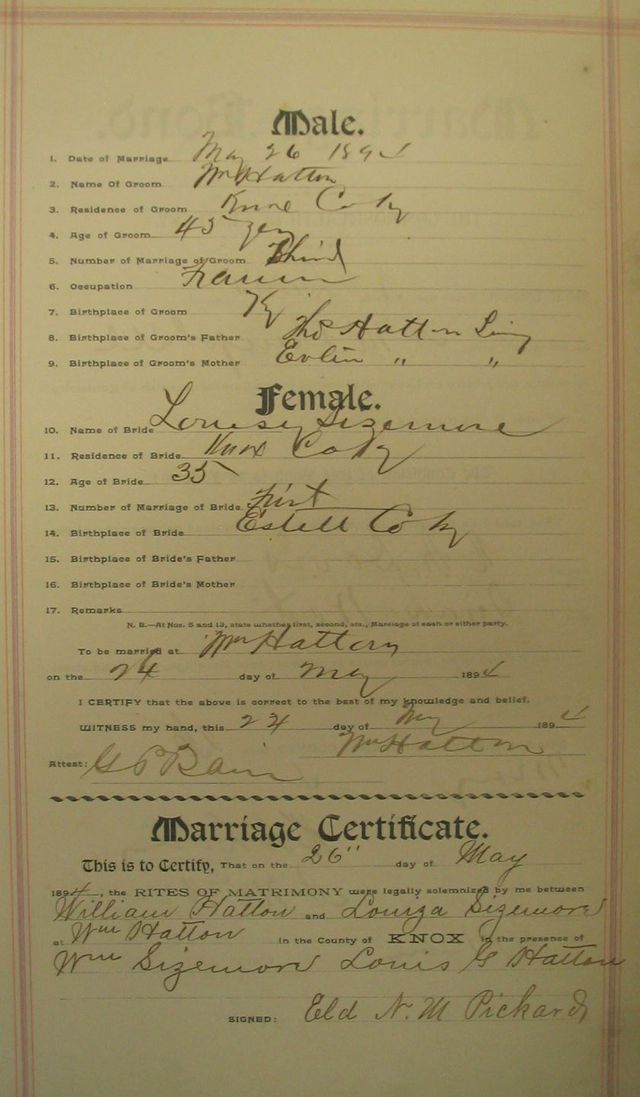 Male.
1. Date of Marriage May 26 1894
2. Name Of Groom Wm Hatton
3. Residence of Groom Knox Co Ky
4. Age of Groom 45
5. Number of Marriage of Groom Third
6. Occupation Farmer
7. Birthplace of Groom Ky
8. Birthplace of Groom's Father Tho Hatton
9. Birthplace of Groom's Mother Evlin " "
Female.
10. Name of Bride Louisy Sizemore
11. Residence of Bride Knox Co Ky
12. Age of Bride 35
13. Number of Marriage of Bride First
14. Birthplace of Bride Estell Co Ky
15. Birthplace of Bride's Father
16. Birthplace of Bride's Mother
17. Remarks
N. B.—At Nos. 5 and 13, state whether first, second, etc., Marriage of each or either party.
To be married at Wm Hattons
on the day of May 1894
I CERTIFY that the above is correct to the best of my knowledge and belief.
WITNESS my hand, this day of May 1894
Wm Hatton
Attest: G P Bain
Marriage Certificate.
This is to Certify, That on the 26" day of May
1894, the RITES OF MATRIMONY were legally solemnized by me between
William Hatton and Louiza Sizemore
at Wm Hatton in the County of KNOX in the presence of
Wm Sizemore Louis G Hatton
SIGNED: Eld N. M Pickard